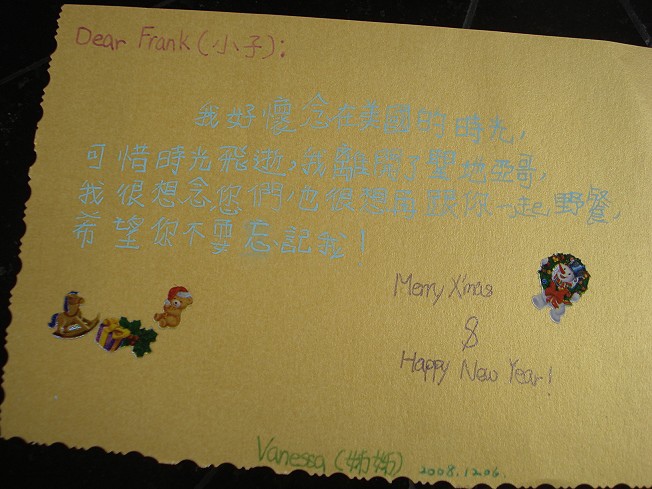 Dear Frank (小子):
我好懷念在美國的時光,
可惜時光飛逝,我離開了聖地亞哥,
我很想念您們,也很想再跟你一起野餐,
希望你不要忘記我!
Merry X'mas
&
Happy New Year!
Vanessa (姊姊) 2008.12.06.